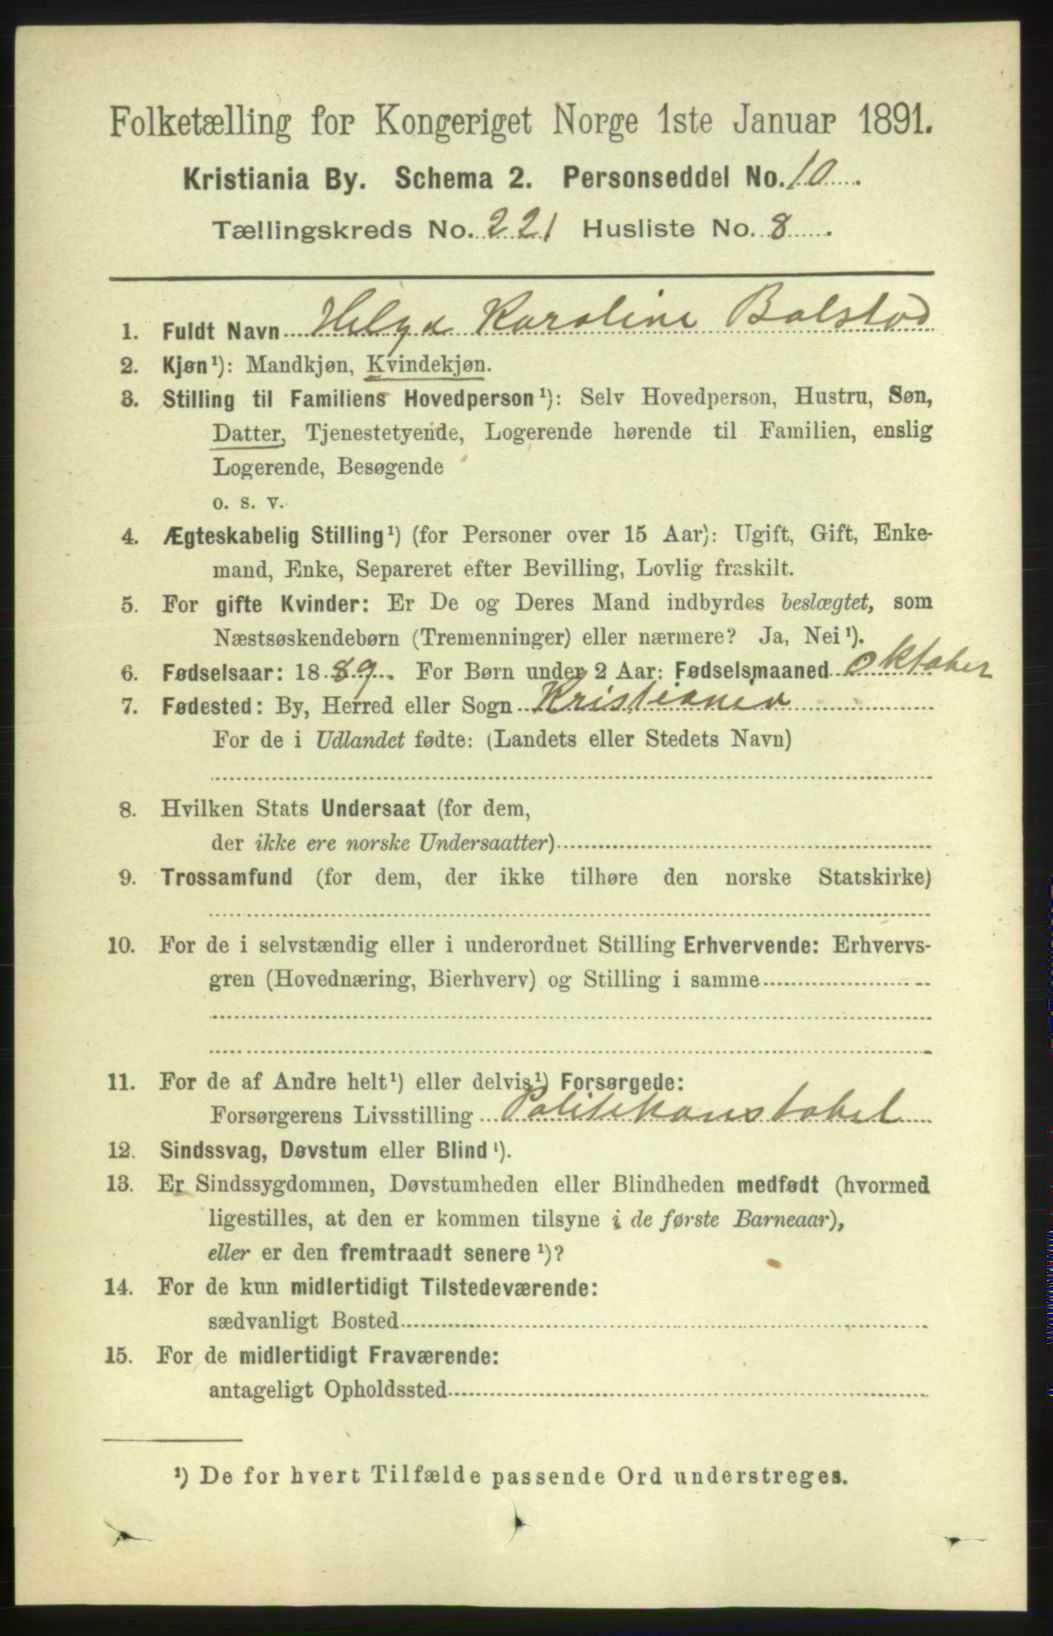 Folketælling for Kongeriget Norge 1ste Januar 1891.
Kristiania By. Schema 2. Personseddel No. 10.
Tællingskreds No. 221 Husliste No. 8.
1. Fuldt Navn Helga Karoline Bolstad
2. Kjøn¹): Mandkjøn, Kvindekjøn.
3. Stilling til Familiens Hovedperson¹): Selv Hovedperson, Hustru, Søn,
Datter, Tjenestetyende, Logerende hørende til Familien, enslig
Logerende, Besøgende
o. s. v.
4. Ægteskabelig Stilling¹) (for Personer over 15 Aar): Ugift, Gift, Enke-
mand, Enke, Separeret efter Bevilling, Lovlig fraskilt.
5. For gifte Kvinder: Er De og Deres Mand indbyrdes beslægtet, som
Næstsøskendebørn (Tremenninger) eller nærmere? Ja, Nei¹).
6. Fødselsaar: 1889. For Børn under 2 Aar: Fødselsmaaned Oktober
7. Fødested: By, Herred eller Sogn Kristiania
For de i Udlandet fødte: (Landets eller Stedets Navn)
8. Hvilken Stats Undersaat (for dem,
der ikke ere norske Undersaatter)
9. Trossamfund (for dem, der ikke tilhøre den norske Statskirke)
10. For de i selvstændig eller i underordnet Stilling Erhvervende: Erhvervs-
gren (Hovednæring, Bierhverv) og Stilling i samme
11. For de af Andre helt¹) eller delvis¹) Forsørgede:
Forsørgerens Livsstilling Politikonstabel
12. Sindssvag, Døvstum eller Blind¹).
13. Er Sindssygdommen, Døvstumheden eller Blindheden medfødt (hvormed
ligestilles, at den er kommen tilsyne i de første Barneaar),
eller er den fremtraadt senere¹)?
14. For de kun midlertidigt Tilstedeværende:
sædvanligt Bosted
15. For de midlertidigt Fraværende:
antageligt Opholdssted
¹) De for hvert Tilfælde passende Ord understreges.